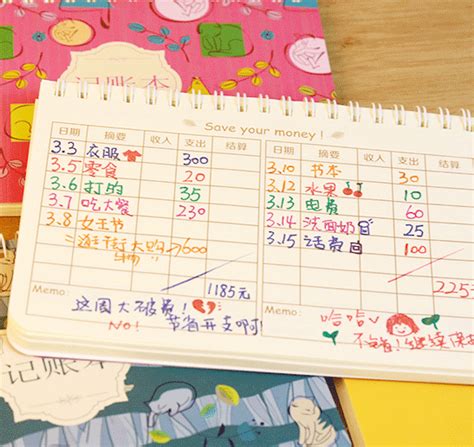 记账本
Save your money!
日期 摘要 收入 支出 结算
3.3 衣服 300
3.5 零食 20
3.6 打的 35
3.7 吃大餐 230
3.8 女王节
600
1185元
Memo:
这周大破费!
NO! 节省开支啊!
日期 摘要 收入 支出 结算
3.10 书本 30
3.12 水果 10
3.13 电费 60
3.14 洗面奶 25
3.15 话费 100
225元
Memo:
哈哈
不错!继续保
记账本